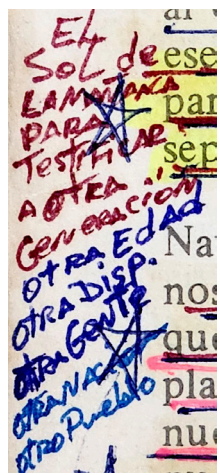 EL
SOL de
LA MAÑANA
PARA
TestifiCAR
A OTRA
GeNeRACIÓN
OTRA EdAd
OTRA DISP.
OTRA GeNte
OTRA NACIÓN
OTRO PUeblO
ese
par
sep
Na
nos
que
pla
nue